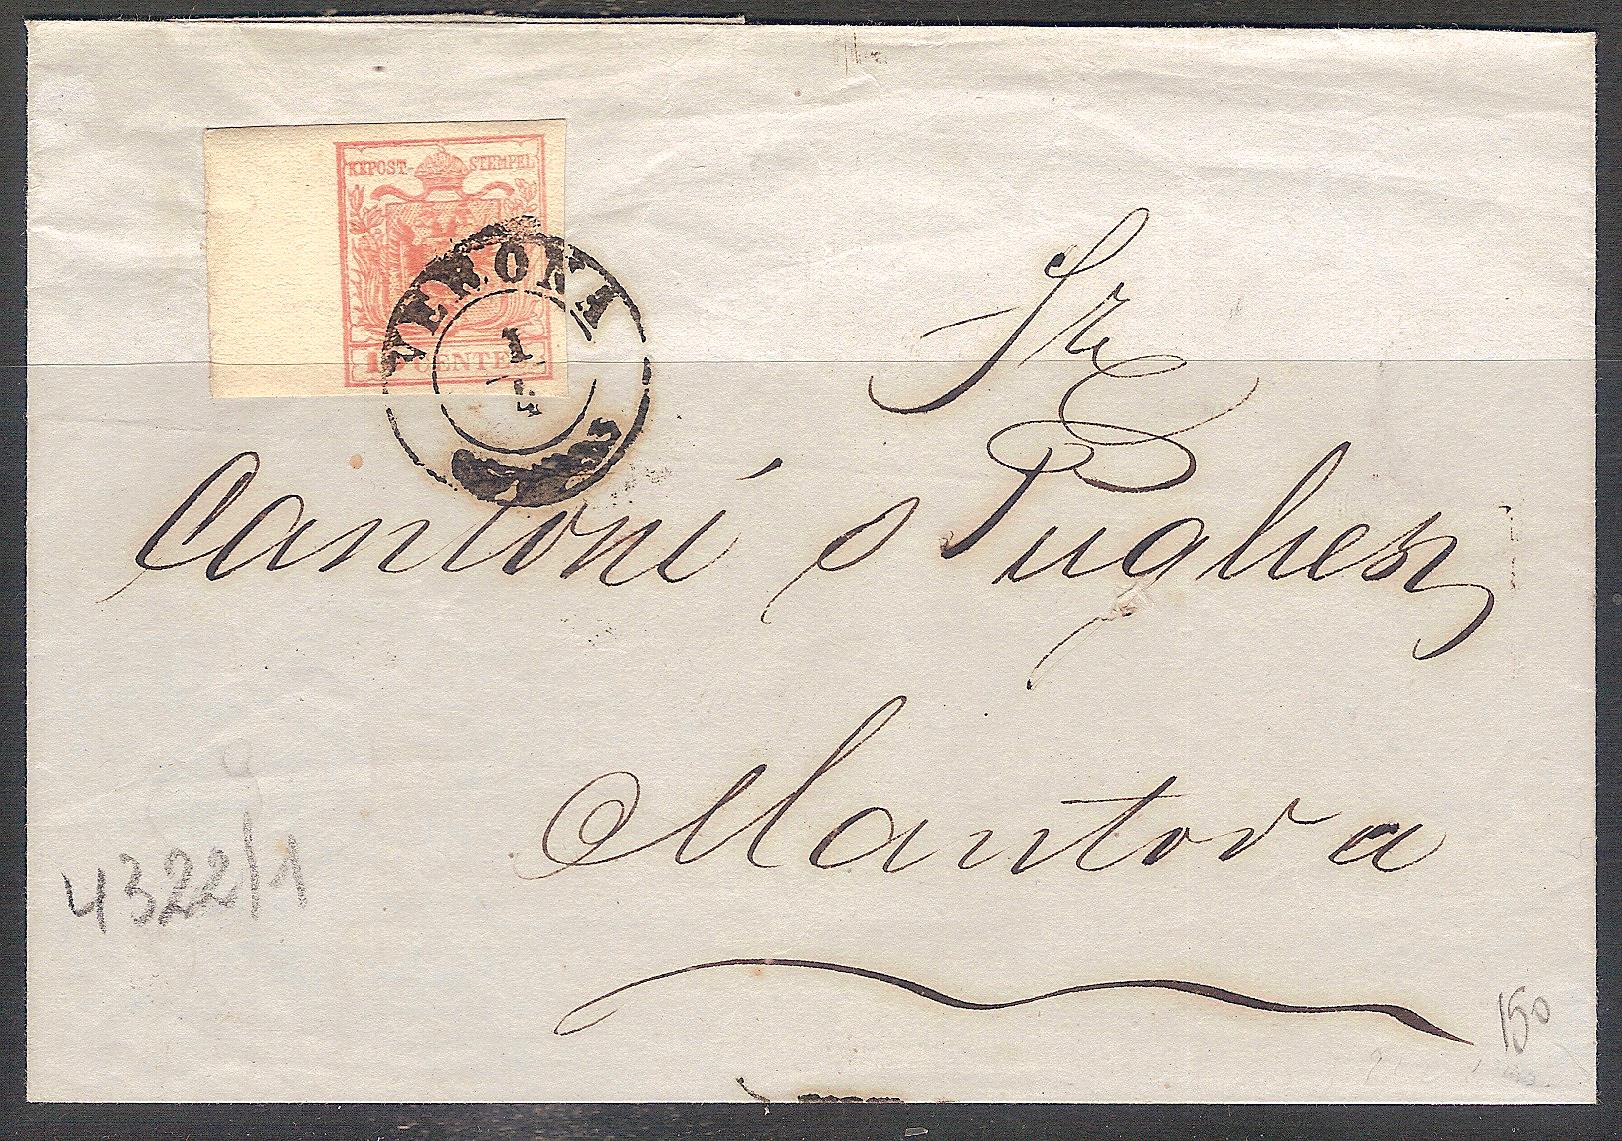 KKPOST-STEMPEL
15 CENTES.
VERONA
1
4
Sr
Cantoni e Pugliesi
Mantova
4322/1
150